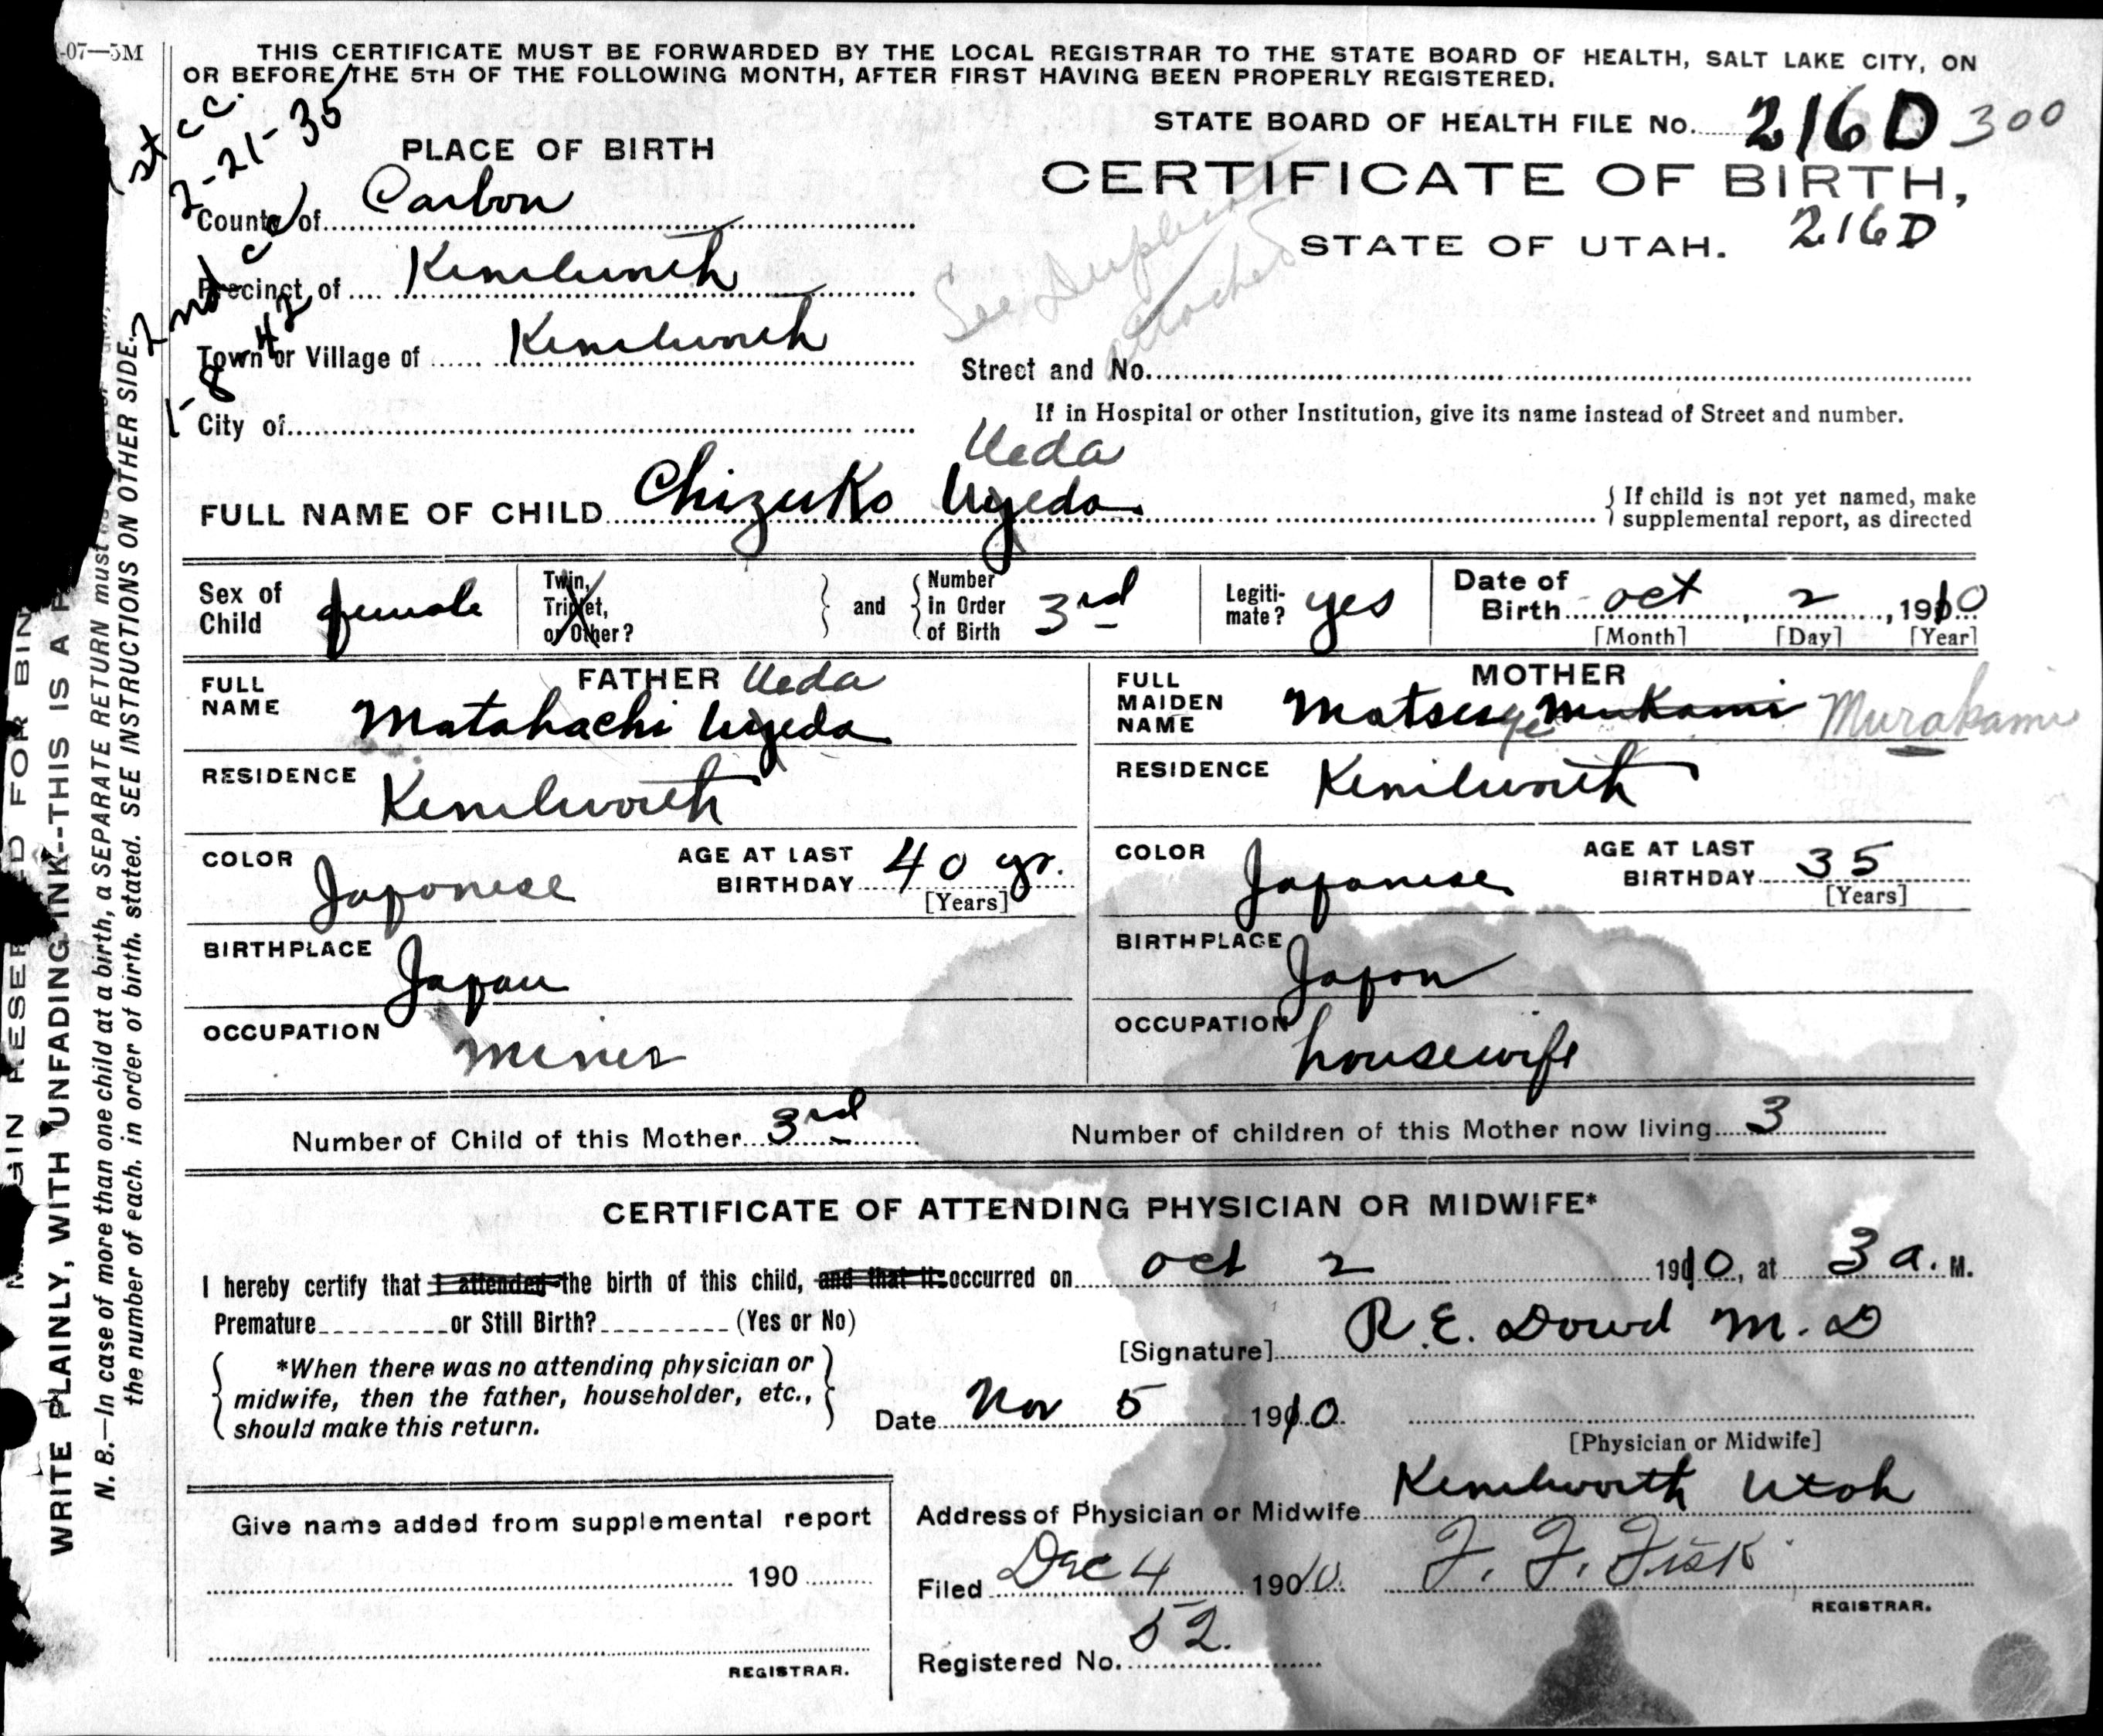 -07—5M
THIS CERTIFICATE MUST BE FORWARDED BY THE LOCAL REGISTRAR TO THE STATE BOARD OF HEALTH, SALT LAKE CITY, ON
OR BEFORE THE 5TH OF THE FOLLOWING MONTH, AFTER FIRST HAVING BEEN PROPERLY REGISTERED.
STATE BOARD OF HEALTH FILE No. 216D 300
CERTIFICATE OF BIRTH,
STATE OF UTAH. 216D
See Duplicate
attached
1st cc.
2-21-35
2nd cc
1-8-42
PLACE OF BIRTH
County of Carbon
Precinct of Kenilworth
Town or Village of Kenilworth
Street and No.
City of
If in Hospital or other Institution, give its name instead of Street and number.
Ueda
FULL NAME OF CHILD Chizuko Uyeda
{ If child is not yet named, make
supplemental report, as directed
Sex of Child female
Twin, Triplet, or Other? } and { Number in Order of Birth 3rd
Legitimate? yes
Date of Birth oct 2, 1910
[Month] [Day] [Year]
FATHER Ueda
FULL NAME Matahachi Uyeda
RESIDENCE Kenilworth
COLOR Japanese AGE AT LAST BIRTHDAY 40 yr.
[Years]
BIRTHPLACE Japan
OCCUPATION miner
MOTHER
FULL MAIDEN NAME Matsuye Mukami Murakami
RESIDENCE Kenilworth
COLOR Japanese AGE AT LAST BIRTHDAY 35
[Years]
BIRTHPLACE Japan
OCCUPATION housewife
Number of Child of this Mother 3rd Number of children of this Mother now living 3
CERTIFICATE OF ATTENDING PHYSICIAN OR MIDWIFE*
I hereby certify that I attended the birth of this child, and that it occurred on oct 2 1910, at 3 a. M.
Premature or Still Birth? (Yes or No)
[Signature] R. E. Dowd M. D
{ *When there was no attending physician or
midwife, then the father, householder, etc.,
should make this return. }
Date Nov 5 1910
[Physician or Midwife]
Give name added from supplemental report
190
REGISTRAR.
Address of Physician or Midwife Kenilworth Utah
Filed Dec 4 1910. F. F. Fisk
REGISTRAR.
Registered No. 52.
WRITE PLAINLY, WITH UNFADING INK--THIS IS A
N. B.—In case of more than one child at a birth, a SEPARATE RETURN must
the number of each, in order of birth, stated. SEE INSTRUCTIONS ON OTHER SIDE.